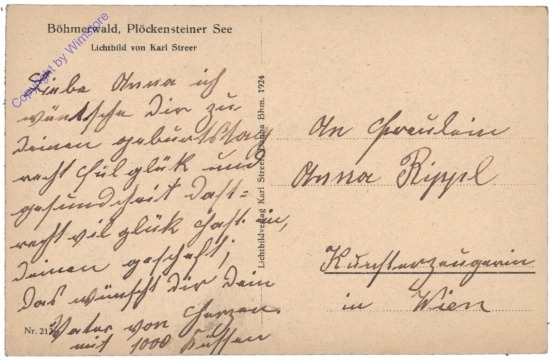 Böhmerwald, Plöckensteiner See
Lichtbild von Karl Streer
Copyright by Wimstore
Liebe Anna ich
wünsche dir zu
deinen geburtstag
recht fül glük und
gesundheit dast=
recht vil glük hast in,
deinen geschäft,
das wünscht dir dein
Vater von Herzen.
mit 1000 Küssen
Nr. 212
Lichtbildverlag Karl Streer, Bhm. 1924
An Freulein
Anna Rippl
in Wien